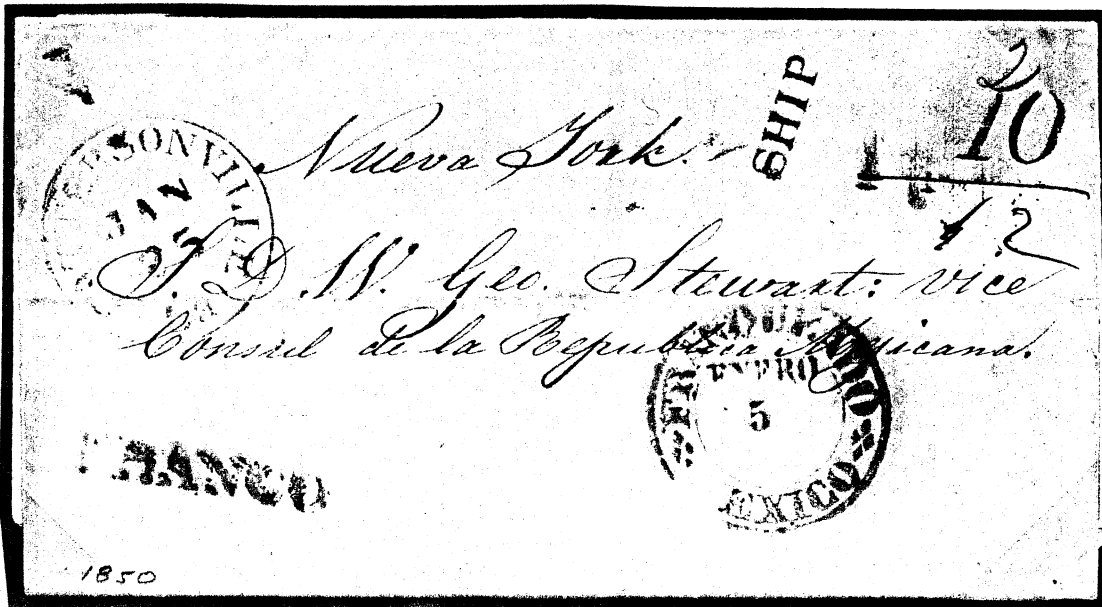 SHIP
2
10
12
Nueva York.
JAN
S. D. W. Geo. Stewart: vice
Consul de la Republica Mejicana.
FRANQUEADO
ENERO
5
MEXICO
FRANCO
1850